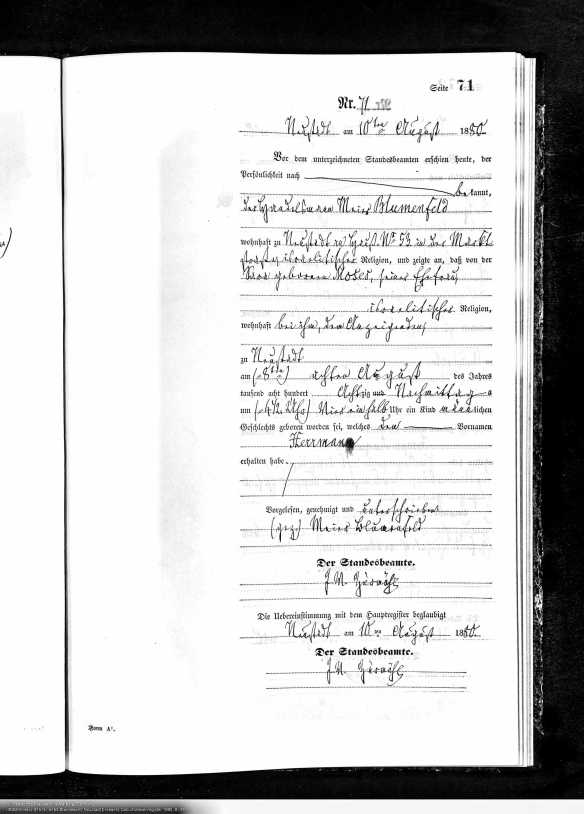 Seite 71
Nr. 71
Neustadt am 10ten August 1880.
Vor dem unterzeichneten Standesbeamten erschien heute, der
Persönlichkeit nach
bekannt,
der Handelsmann Meier Blumenfeld
wohnhaft zu Neustadt Haus No 53 in der Markt
israelitischer Religion, und zeigte an, daß von der
Sara geborenen Moses, seiner Ehefrau,
israelitischer Religion,
wohnhaft bei ihm, dem Anzeigenden,
zu Neustadt
am (8ten) achten August des Jahres
tausend acht hundert Achtzig und Nachmittags
um (4½ Uhr) Vier ein halb Uhr ein Kind männlichen
Geschlechts geboren worden sei, welches den Vornamen
Herrmann
erhalten habe.
Vorgelesen, genehmigt und unterschrieben
(gez.) Meier Blumenfeld
Der Standesbeamte.
J. M.
Die Uebereinstimmung mit dem Hauptregister beglaubigt
Neustadt am 10ten August 1880.
Der Standesbeamte.
J. M.
Form A¹.